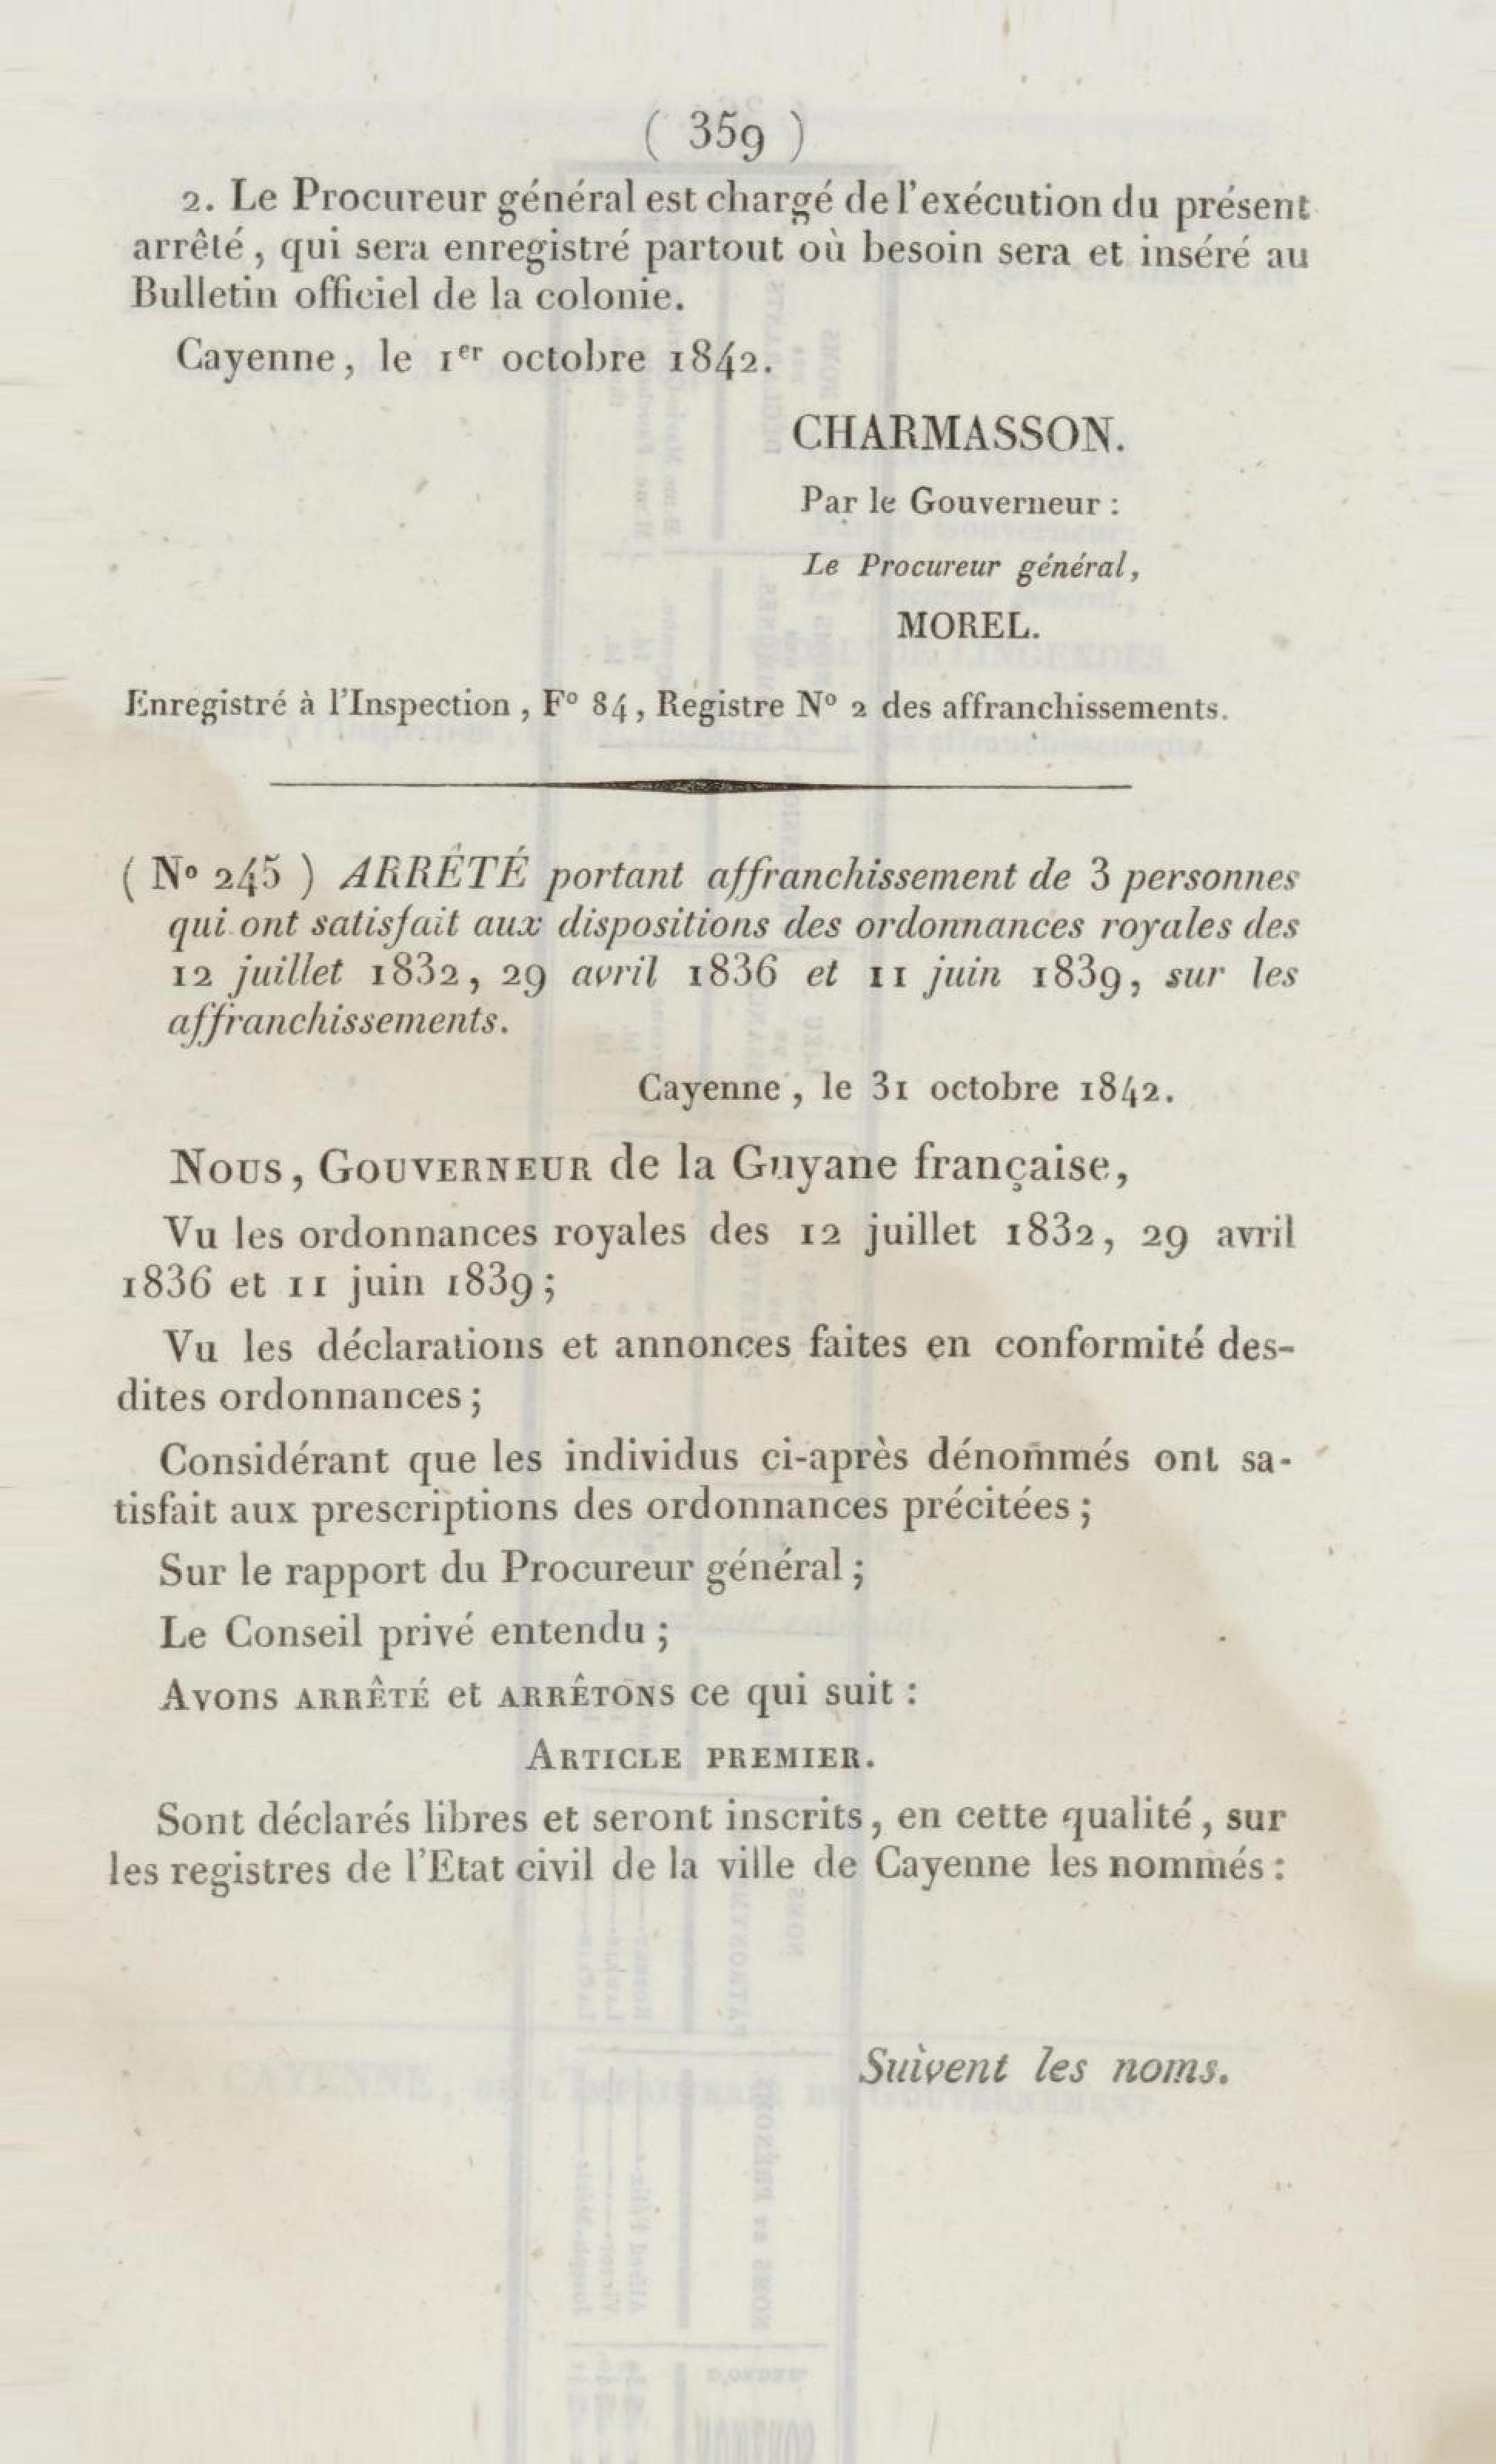 ( 359 )
2. Le Procureur général est chargé de l'exécution du présent
arrêté, qui sera enregistré partout où besoin sera et inséré au
Bulletin officiel de la colonie.
Cayenne, le 1er octobre 1842.
CHARMASSON.
Par le Gouverneur :
Le Procureur général,
MOREL.
Enregistré à l'Inspection, Fº 84, Registre Nº 2 des affranchissements.
( Nº 245 ) ARRÊTÉ portant affranchissement de 3 personnes
qui ont satisfait aux dispositions des ordonnances royales des
12 juillet 1832, 29 avril 1836 et 11 juin 1839, sur les
affranchissements.
Cayenne, le 31 octobre 1842.
NOUS, GOUVERNEUR de la Guyane française,
Vu les ordonnances royales des 12 juillet 1832, 29 avril
1836 et 11 juin 1839;
Vu les déclarations et annonces faites en conformité des-
dites ordonnances;
Considérant que les individus ci-après dénommés ont sa-
tisfait aux prescriptions des ordonnances précitées;
Sur le rapport du Procureur général;
Le Conseil privé entendu;
Avons ARRÊTÉ et ARRÊTONS ce qui suit :
ARTICLE PREMIER.
Sont déclarés libres et seront inscrits, en cette qualité, sur
les registres de l'Etat civil de la ville de Cayenne les nommés :
Suivent les noms.